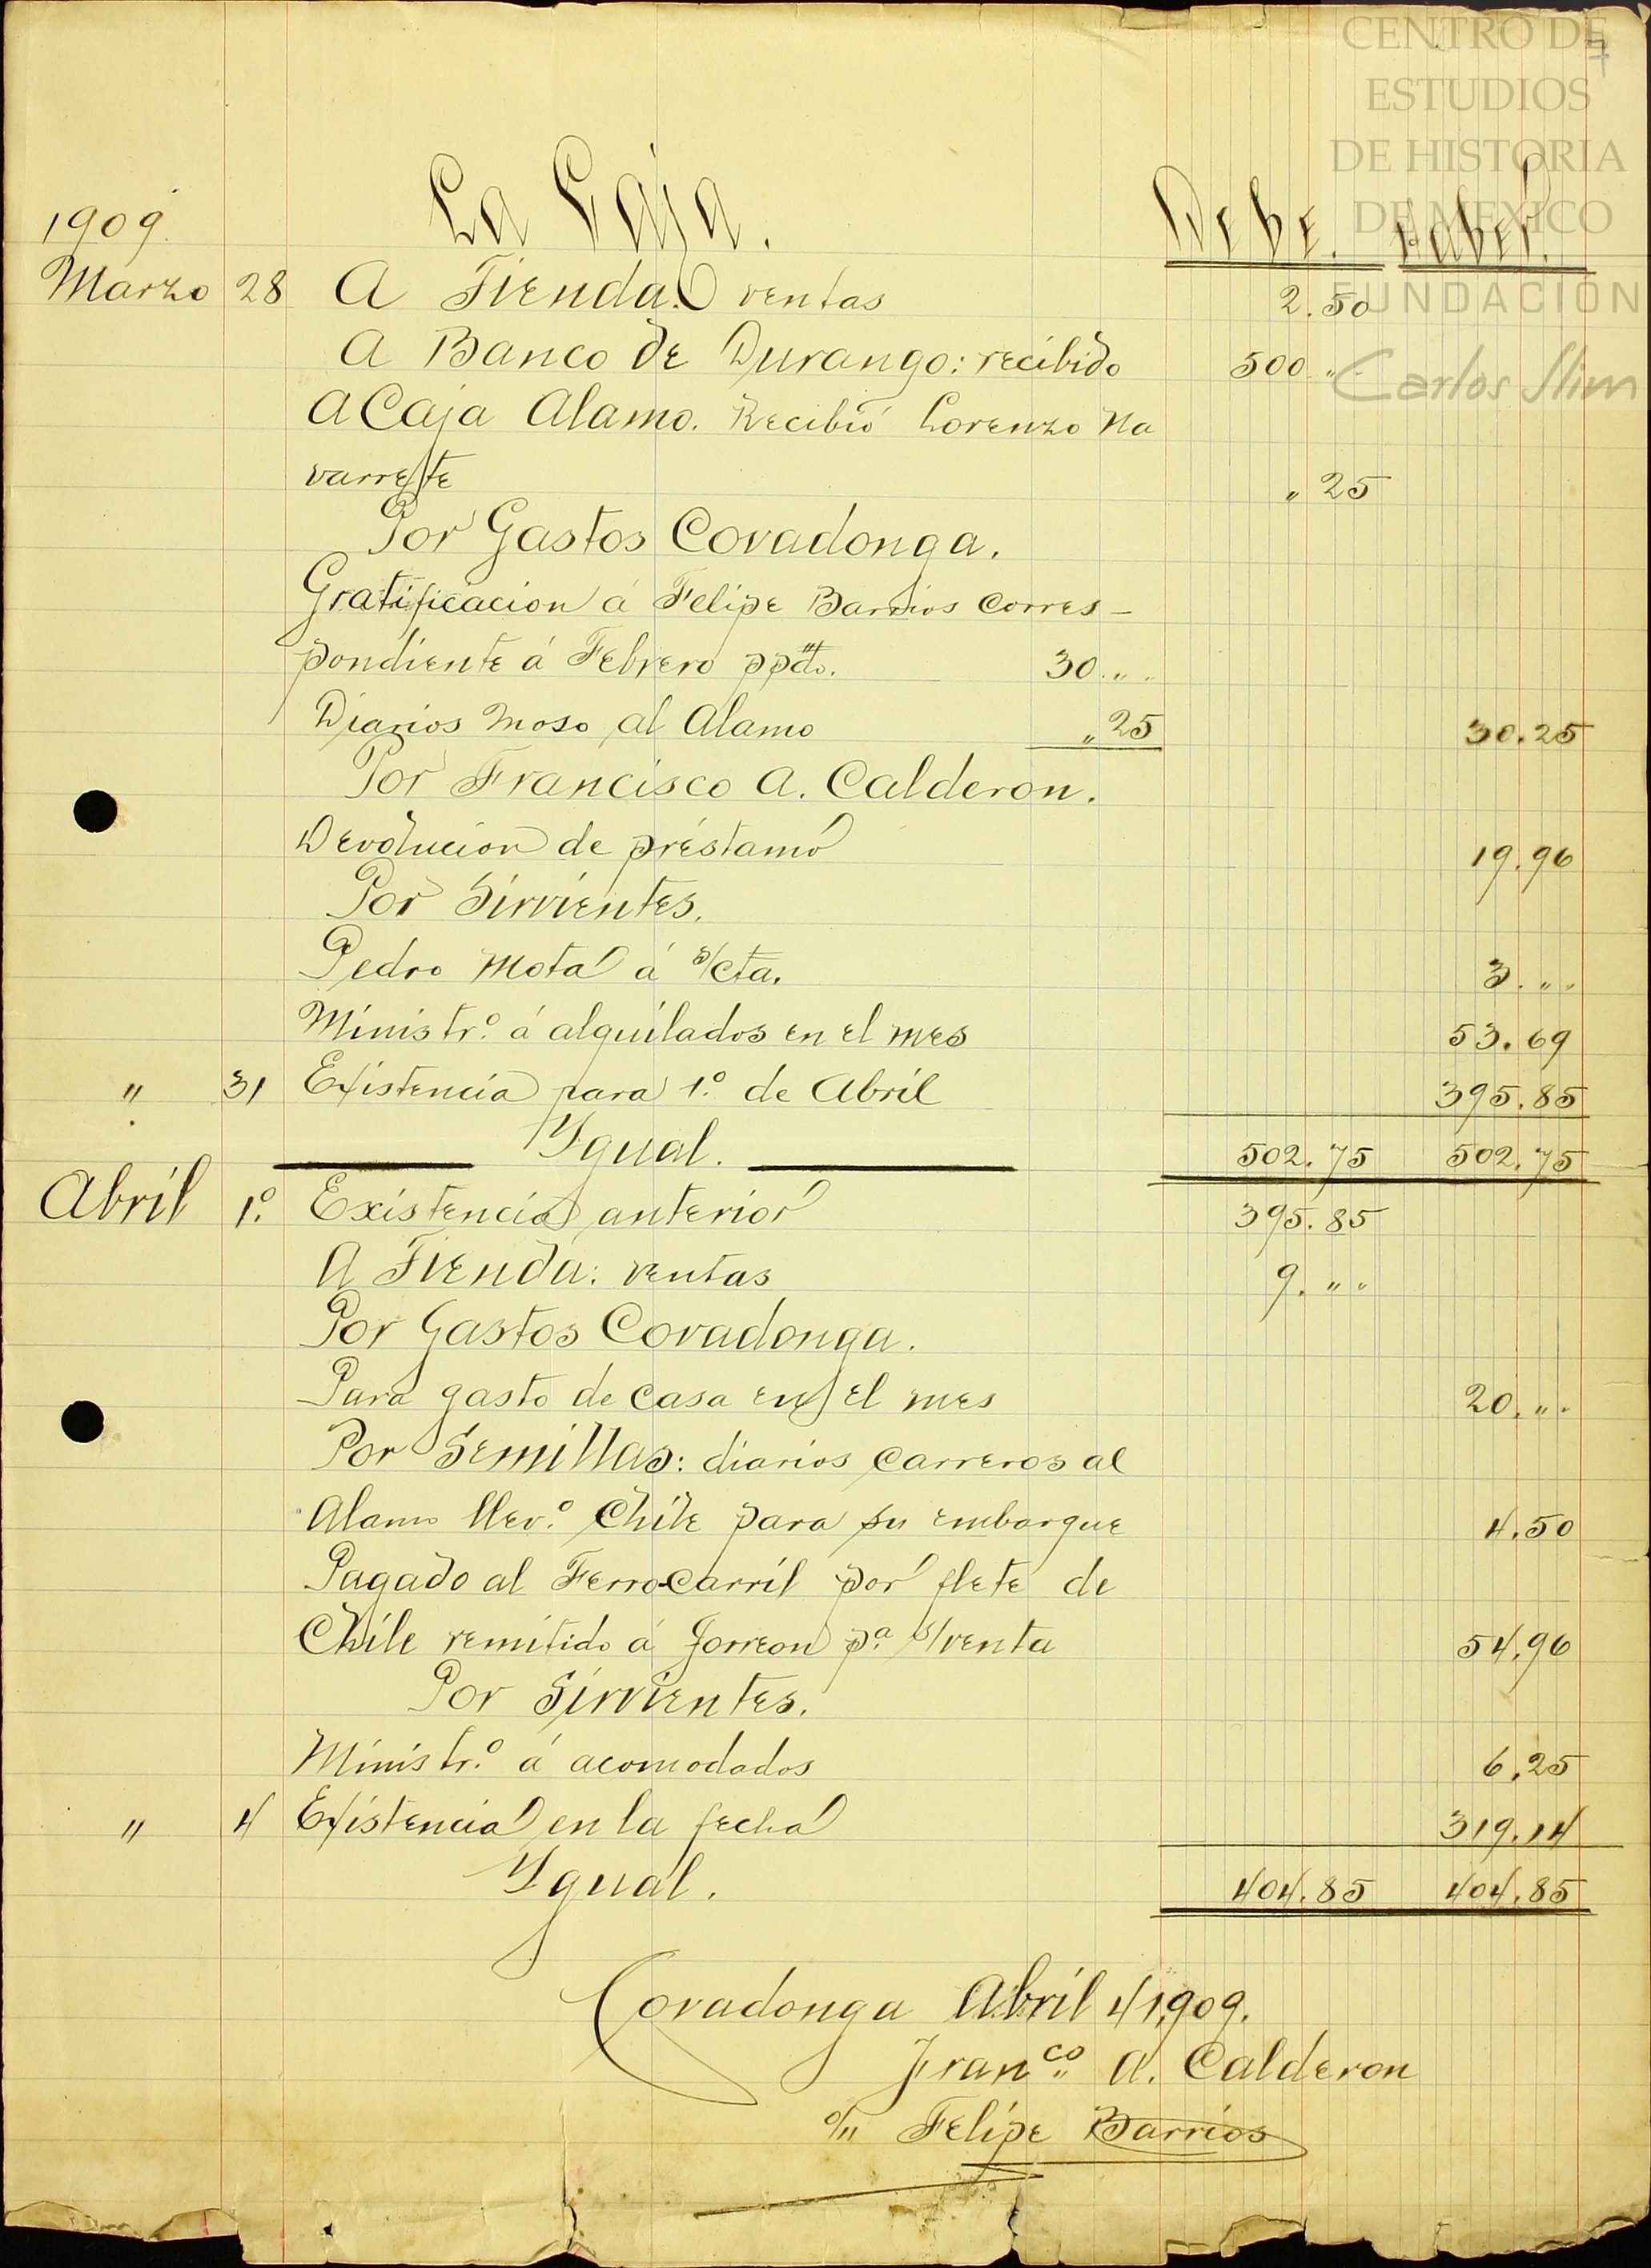 CENTRO DE
7
ESTUDIOS
DE HISTORIA
DE MEXICO
FUNDACION
Carlos Slim
1909. La Caja. Debe. Haber.
Marzo 28 A Tienda. ventas 2.50
A Banco de Durango: recibido 500 „
A Caja Alamo. Recibió Lorenzo Na
varrete „ 25
Por Gastos Covadonga.
Gratificacion á Felipe Barrios corres-
pondiente á Febrero ppdo. 30 „
Diarios moso al Alamo „ 25 30.25
Por Francisco A. Calderon.
Devolucion de préstamo 19.96
Por Sirvientes.
Pedro Mota á s/cta. 3. „
Ministr.º á alquilados en el mes 53.69
" 31 Existencia para 1.º de Abril 395.85
Ygual. 502.75 502.75
Abril 1.º Existencia anterior 395.85
A Tienda: ventas 9. „
Por Gastos Covadonga.
Para gasto de casa en el mes 20. „
Por Semillas: diarios carreros al
Alamo llev.º Chile para su embarque 4.50
Pagado al Ferrocarril por flete de
Chile remitido á Torreon p.ª s/venta 54.96
Por Sirvientes.
Ministr.º á acomodados 6.25
" 4 Existencia en la fecha 319.14
Ygual. 404.85 404.85
Covadonga Abril 4 1,909.
Fran.co A. Calderon
Felipe Barrios